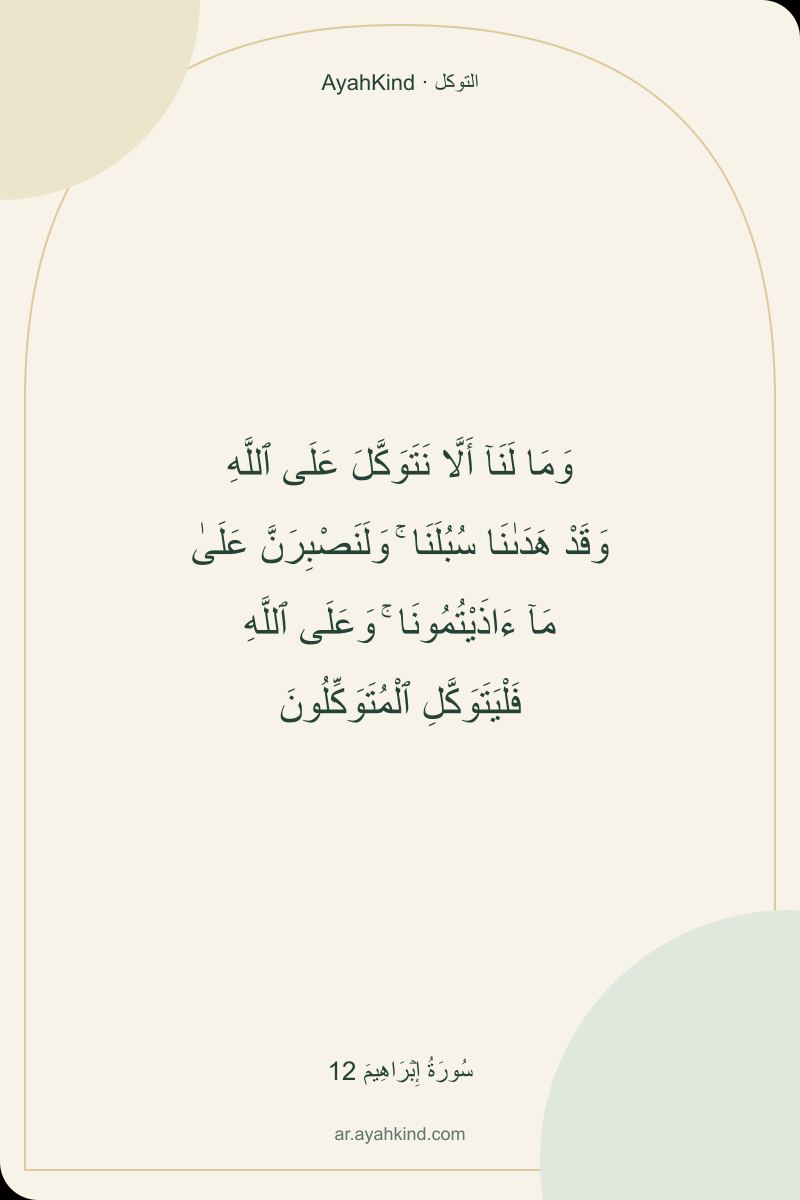 AyahKind · التوكل
وَمَا لَنَآ أَلَّا نَتَوَكَّلَ عَلَى ٱللَّهِ
وَقَدْ هَدَىٰنَا سُبُلَنَا ۚ وَلَنَصْبِرَنَّ عَلَىٰ
مَآ ءَاذَيْتُمُونَا ۚ وَعَلَى ٱللَّهِ
فَلْيَتَوَكَّلِ ٱلْمُتَوَكِّلُونَ
سُورَةُ إِبۡرَاهِيمَ 12
ar.ayahkind.com